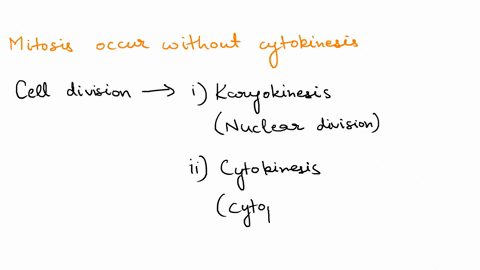 Mitosis occur without cytokinesis
Cell division → i) Karyokinesis
(Nuclear division)
ii) Cytokinesis
(Cyto